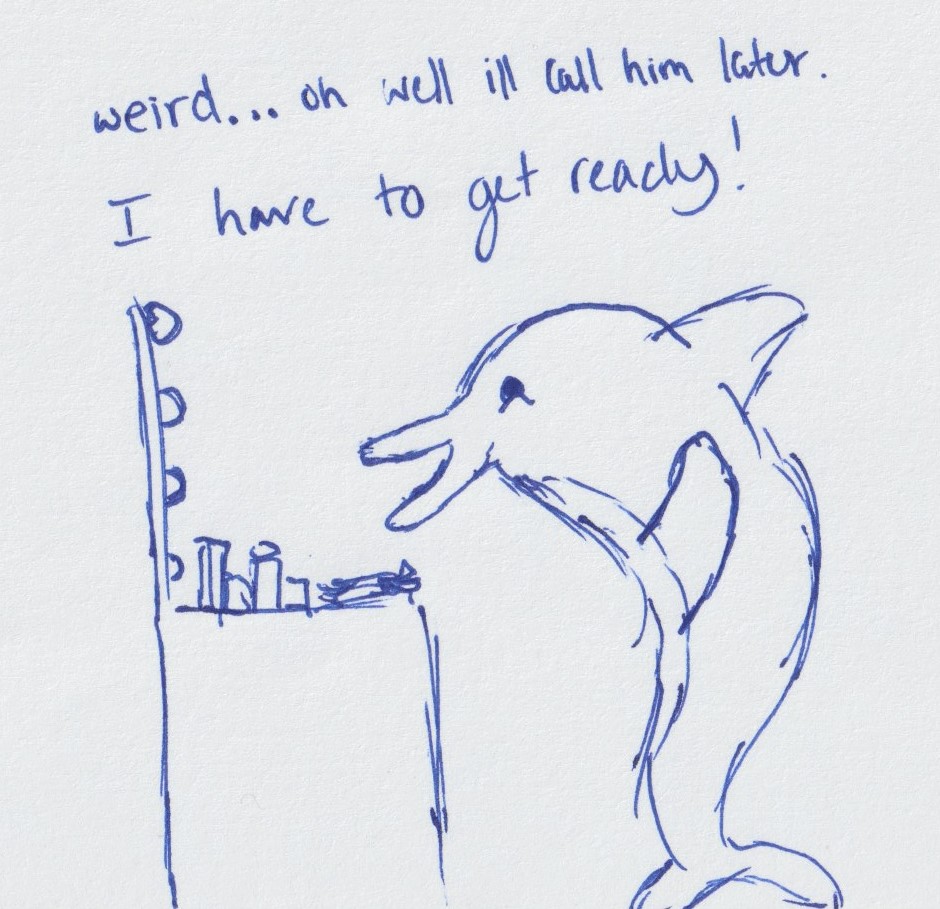 weird... oh well ill call him later.
I have to get ready!